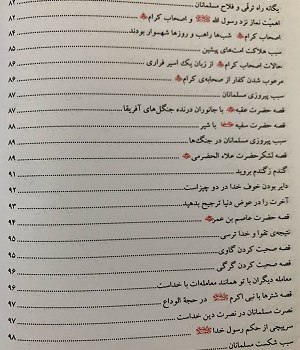 یگانه راه ترقّی و فلاح مسلمانان ........ ۸۲
اهمیّت نماز نزد رسول الله ﷺ و اصحاب کرام ........ ۸۲
اصحاب کرام شب‌ها راهب و روزها شهسوار بودند ........ ۸۴
سبب هلاکت امت‌های پیشین ........ ۸۵
حالات اصحاب کرام از زبان یک اسیر فراری ........ ۸۶
مرعوب شدن کفار از صحابه‌ی کرام ........ ۸۶
سبب پیروزی مسلمانان ........ ۸۷
قصه حضرت عقبه با جانوران درنده جنگل‌های آفریقا ........ ۸۷
قصه حضرت سفینه با شیر ........ ۸۸
سبب پیروزی مسلمانان در جنگ‌ها ........ ۸۸
قصه لشکر حضرت علاء الحضرمی ........ ۸۹
گندم گندم بروید ........ ۹۱
دایر بودن خوف خدا در دو چیزاست ........ ۹۲
آخرت را در عوض دنیا ترجیح بدهید ........ ۹۳
قصه حضرت عاصم بن عمر ........ ۹۴
نتیجه‌ی تقوا و خدا ترسی ........ ۹۵
قصه صحبت کردن گاوی ........ ۹۵
قصه صحبت کردن گرگی ........ ۹۶
معامله دیگران با تو همانند معامله‌ات با خداست ........ ۹۶
قصه شترها با نبی اکرم ﷺ در حجة الوداع ........ ۹۷
نصرت مسلمانان در نصرت دین خداست ........ ۹۷
سرپیچی از حکم رسول خدا ﷺ ........ ۹۸
سبب شکست مسلمانان